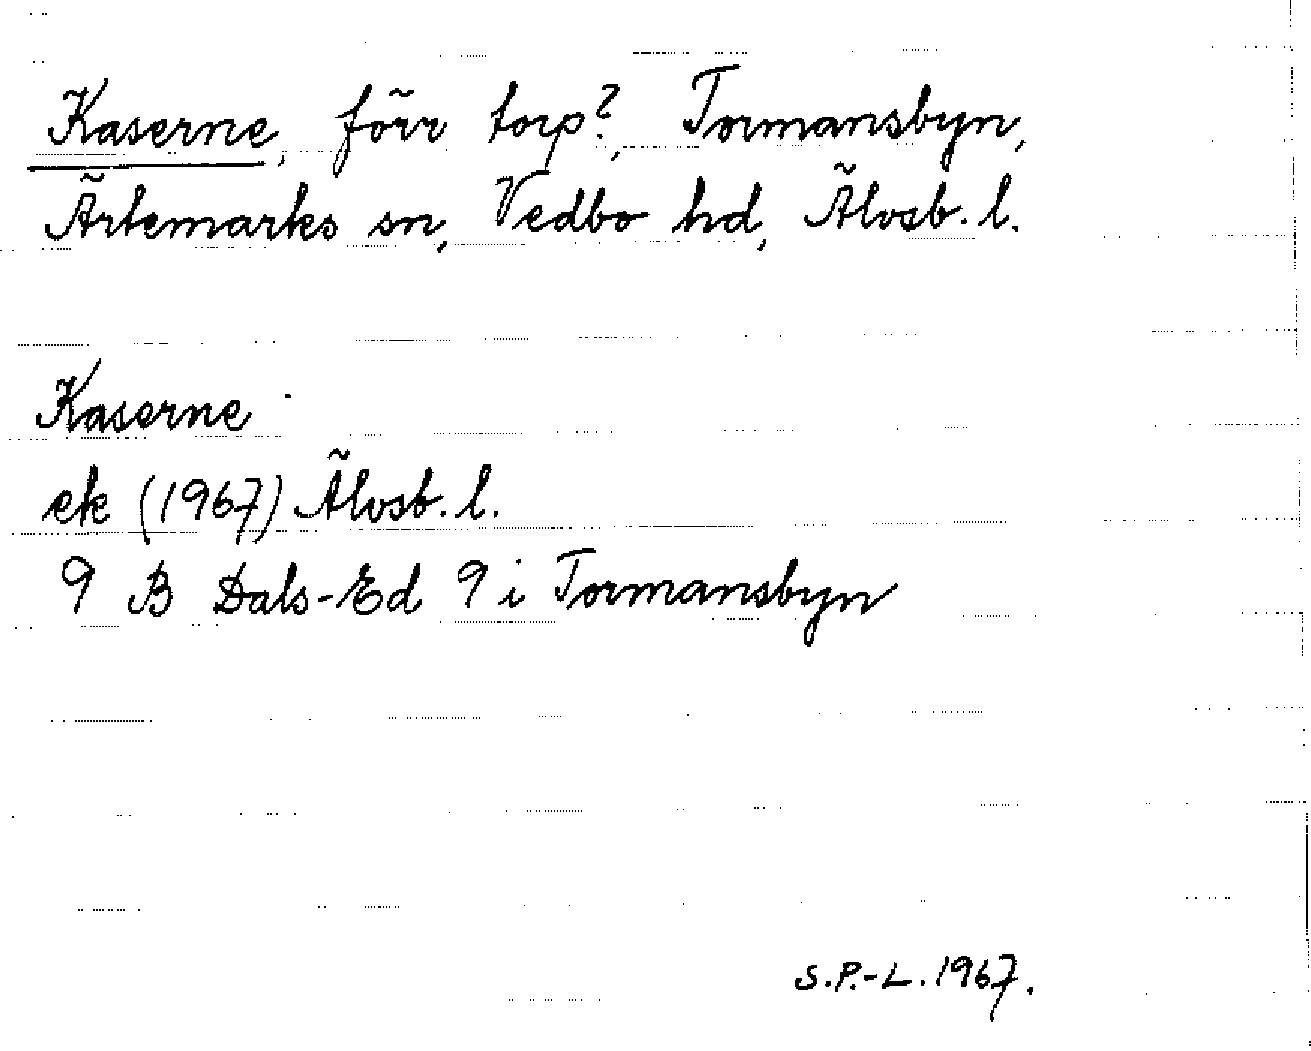 Kaserne, förr torp?, Tormansbyn,
Ärtemarks sn, Vedbo hd, Älvsb. l.
Kaserne
ek (1967) Älvsb. l.
9 B Dals-Ed 9 i Tormansbyn
S.P.-L. 1967.